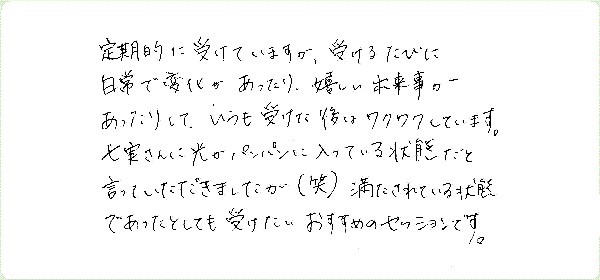 定期的に受けていますが、受けるたびに
日常で変化があったり、嬉しい出来事が
あったりして、いつも受けた後はワクワクしています。
七実さんに光がパンパンに入っている状態だと
言っていただきましたが（笑）満たされている状態
であったとしても受けたいおすすめのセッションです。